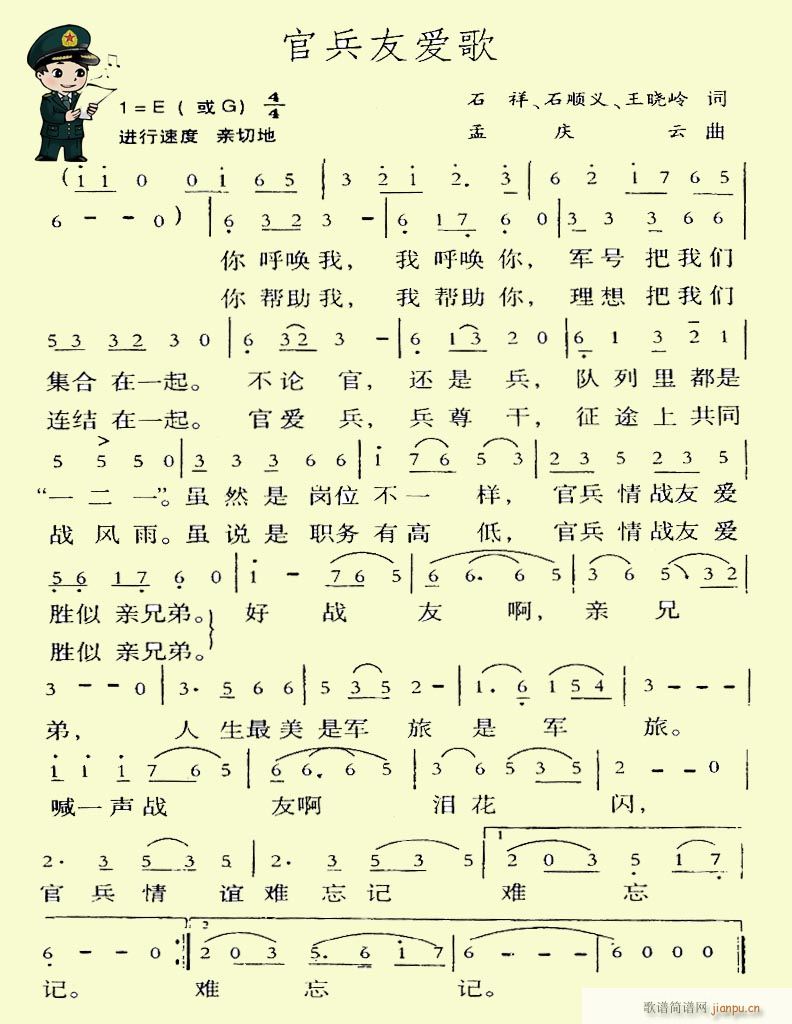 官兵友爱歌
1=E (或G) 4/4
石 祥、石顺义、王晓岭 词
进行速度 亲切地
孟 庆 云 曲
(i i 0 0 i 6 5 | 3 2 i 2. 3 | 6 2 i 7 6 5
6 - - 0) | 6 3 2 3 - | 6 1 7 6 0 | 3 3 3 6 6
你 呼唤 我, 我 呼唤 你, 军号 把我们
你 帮助 我, 我 帮助 你, 理想 把我们
5 3 3 2 3 0 | 6 3 2 3 - | 6 1 3 2 0 | 6 1 3 2
集合 在一起。 不论 官, 还是 兵, 队列里都是
连结 在一起。 官爱 兵, 兵尊 干, 征途上共同
5 5 5 0 | 3 3 3 6 6 | i 7 6 5 3 | 2 3 5 2 3 5
“一二一”。虽然是 岗位不一 样, 官兵 情战友 爱
战风雨。虽说是 职务有高 低, 官兵 情战友 爱
5 6 1 7 6 0 | i - 7 6 5 | 6 6. 6 5 | 3 6 5 3 2
胜似 亲兄弟。 好 战 友 啊, 亲 兄
胜似 亲兄弟。
3 - - 0 | 3. 5 6 6 | 5 3 5 2 - | 1. 6 1 5 4 | 3 - - -
弟, 人生最美是军 旅 是 军 旅。
i i i 7 6 5 | 6 6. 6 5 | 3 6 5 3 5 | 2 - - 0
喊一声战 友啊 泪花 闪,
2. 3 5 3 | 2. 3 5 3 5 | 1 2 0 3 5 1 7
官 兵 情 谊难忘记 难 忘
6 - - 0 :| 2 2 0 3 | 5. 6 1 7 | 6 - - - | 6 0 0 0
记。 难 忘 记。
歌谱简谱网 jianpu.cn